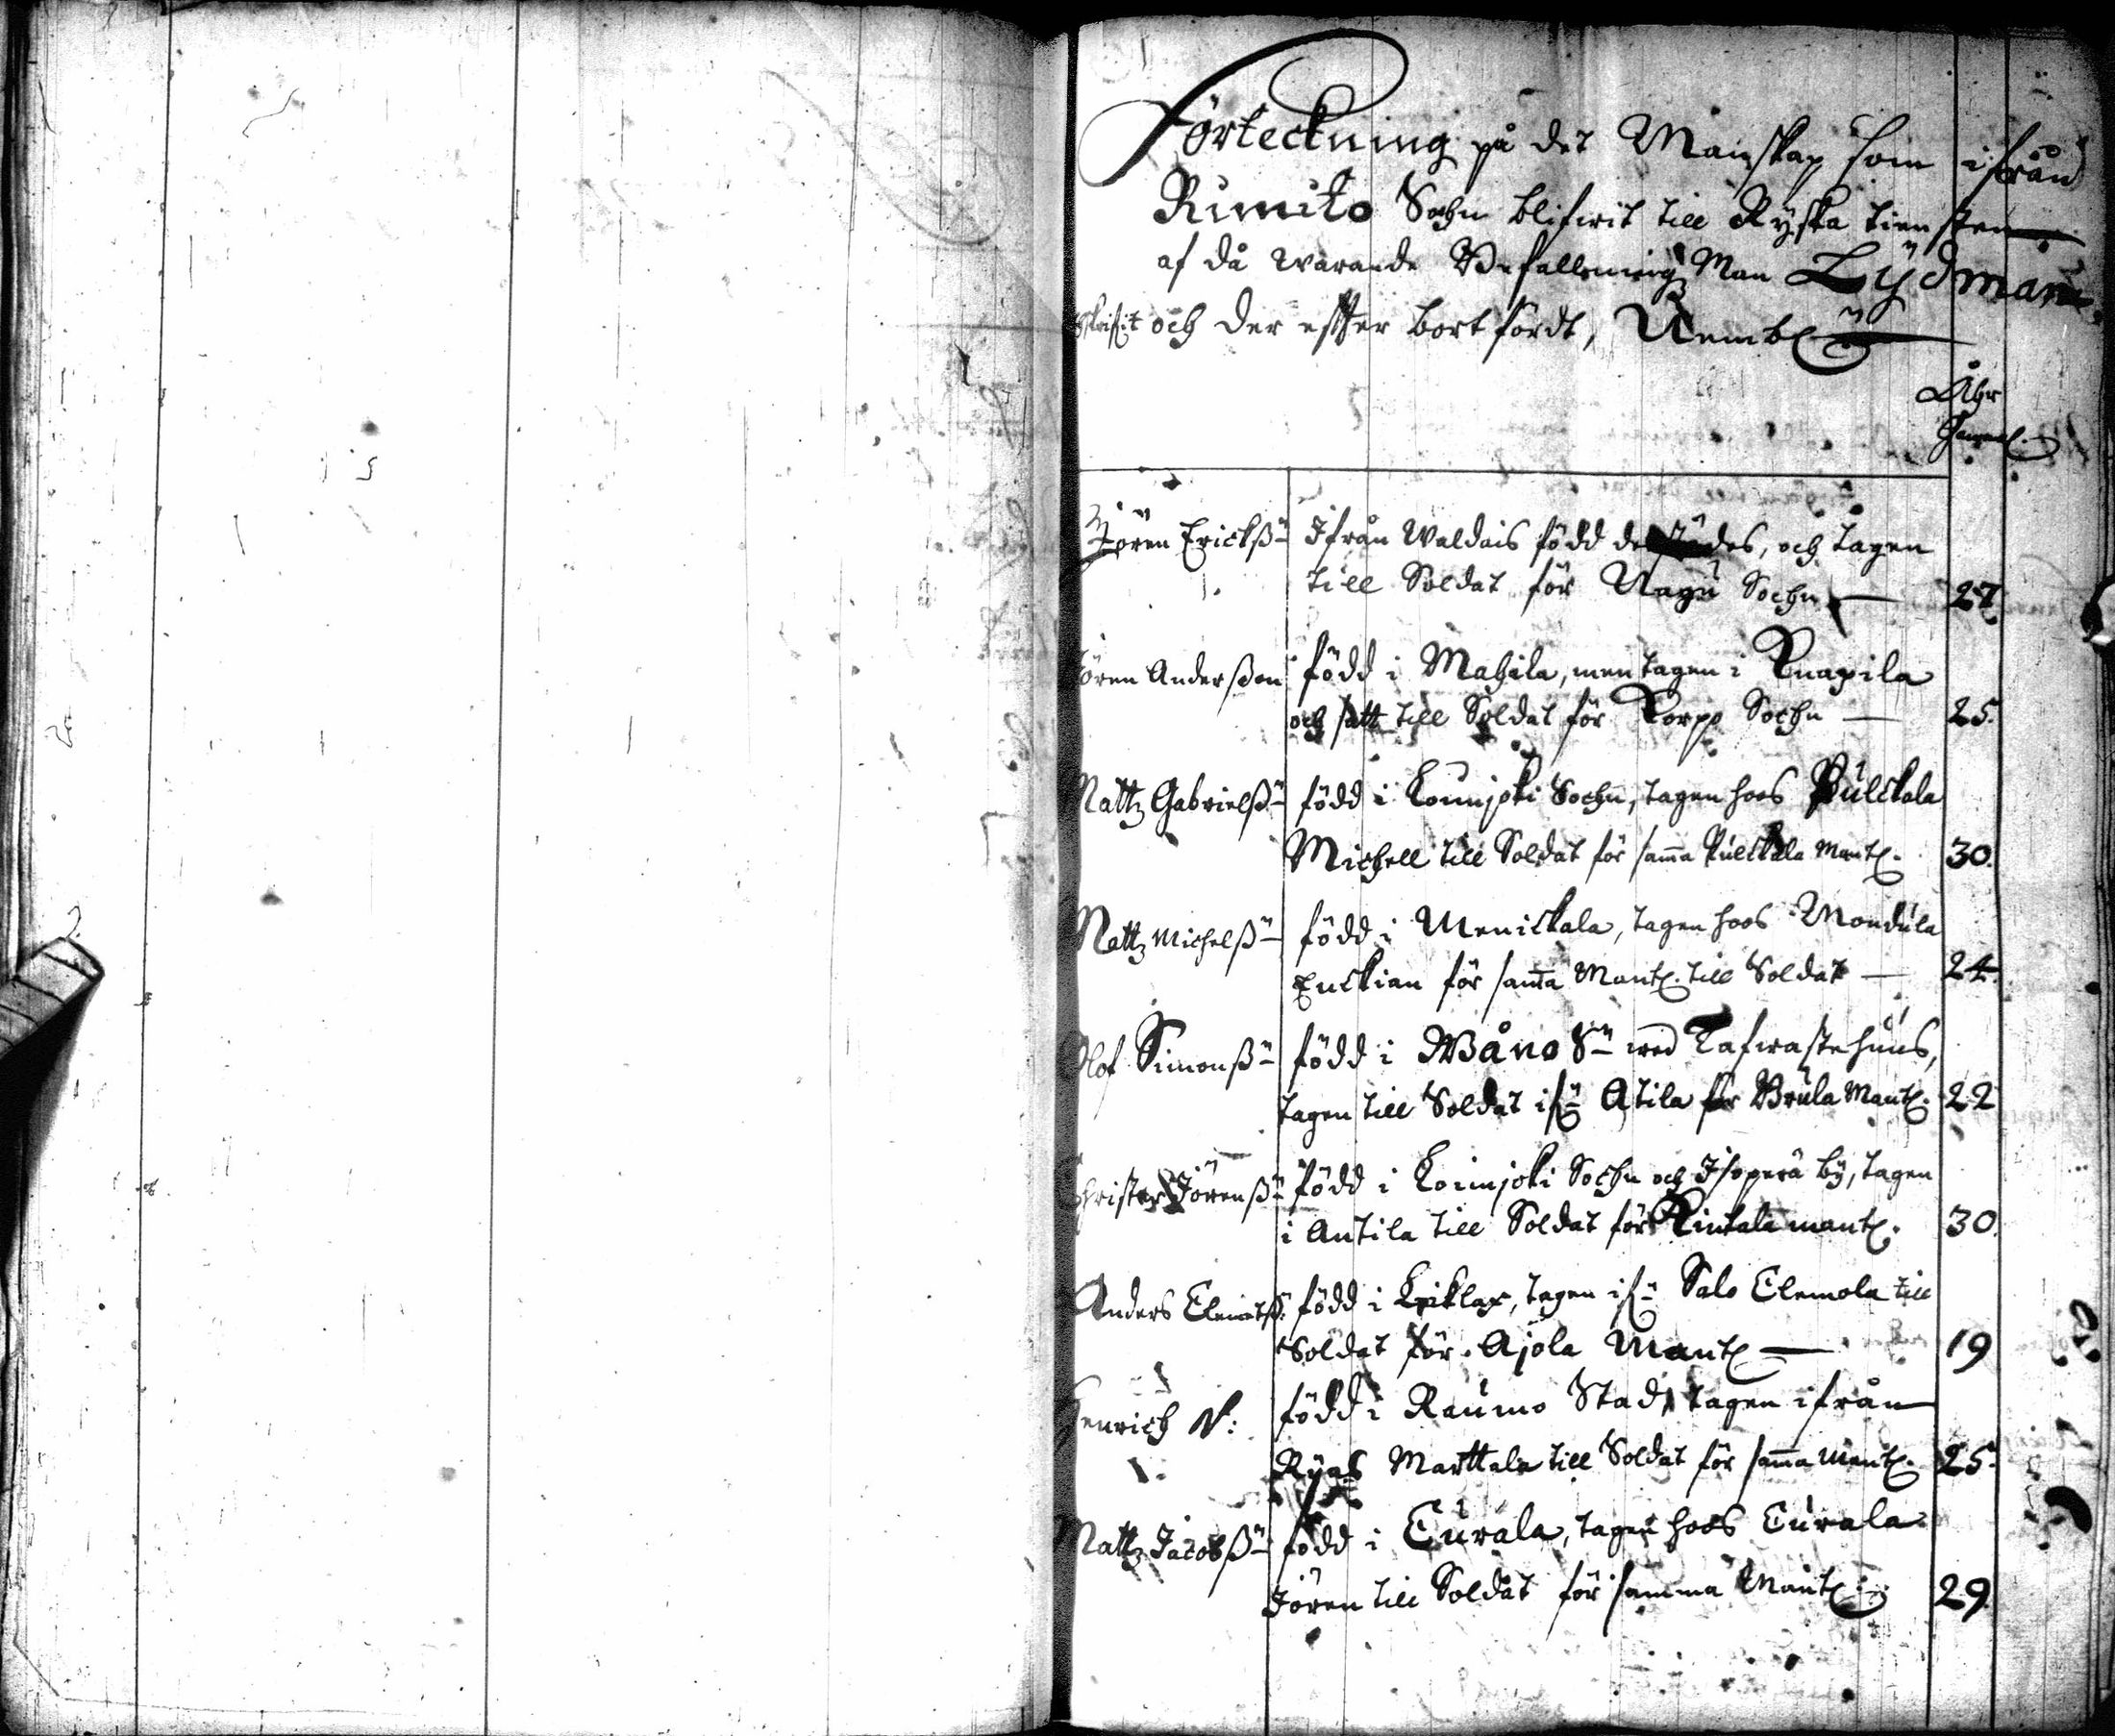 Förteckning på det Manskap som ifrån
Rimito Sochn blifwit till Ryska tiensten
af då warande Befallnings Man Lydman
och der effter bortfördt, Nembl:
Åhr
Gammal.
Jören Ericksß: Ifrån Waldais född derstädes, och tagen
till Soldat för Nagu Sochn — 27
Jören Anderßon född i Mahila, men tagen i Knapila
och satt till Soldat för Korpo Sochn — 25.
Mattz Gabrielß: född i Loimjoki Sochn, tagen hoos Pulckala
Michell till Soldat för samma Pulckala Mantl. 30.
Mattz Michelß: född i Menickala, tagen hoos Mondula
Enckian för samma Mantl. till Soldat — 24.
Olof Simonß: född i Wåno Sn wed Tafwastehuus,
tagen till Soldat ifn Atila för Brula Mantl. 22
Christer Jörenß: född i Loimjoki Sochn och Isoperä by, tagen
i Antila till Soldat för Rintala mantl. 30.
Anders Clemetß: född i, tagen ifn Salo Clemola till
Soldat för Ajola Mantl — 19
Henrich N: född i Raumo Stad, tagen ifrån
Marttala till Soldat för samma Mantl. 25.
Mattz Jacobß: född i Eurala, tagen hoos Eurala
Jören till Soldat för samma Mantl: 29.